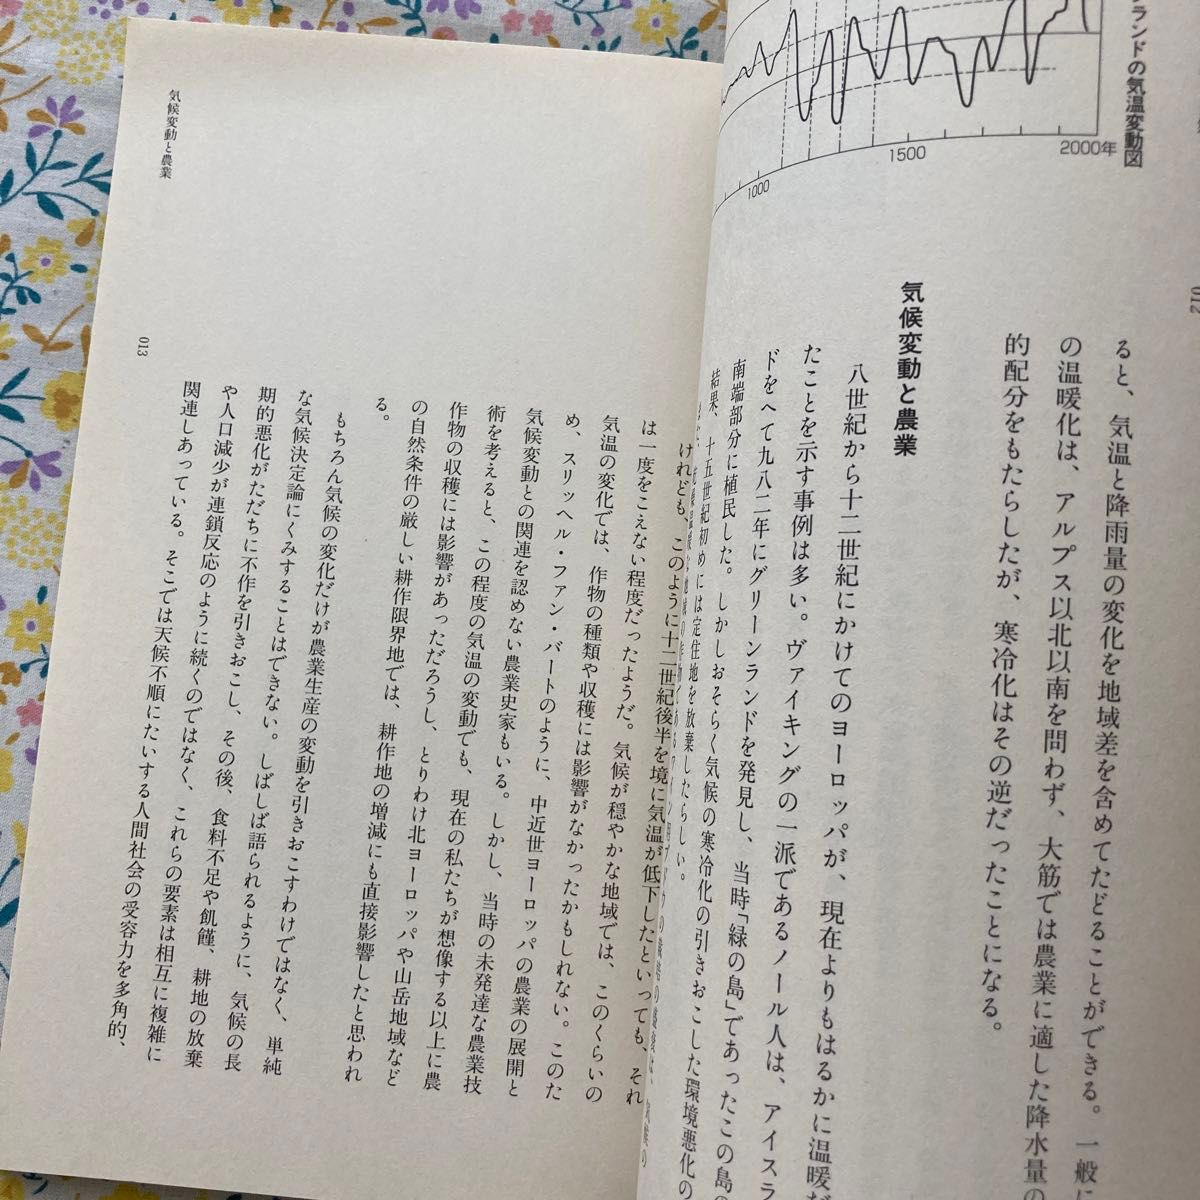 ランドの気温変動図
1000
1500
2000年
012
ると、気温と降雨量の変化を地域差を含めてたどることができる。一般に
の温暖化は、アルプス以北以南を問わず、大筋では農業に適した降水量の
的配分をもたらしたが、寒冷化はその逆だったことになる。
気候変動と農業
八世紀から十二世紀にかけてのヨーロッパが、現在よりもはるかに温暖だ
たことを示す事例は多い。ヴァイキングの一派であるノール人は、アイスラ
ドをへて九八二年にグリーンランドを発見し、当時「緑の島」であったこの島の
南端部分に植民した。しかしおそらく気候の寒冷化の引きおこした環境悪化の
結果、十五世紀初めには定住地を放棄したらしい。
けれども、このように十二世紀後半を境に気温が低下したといっても、それ
は一度をこえない程度だったようだ。気候が穏やかな地域では、このくらいの
気温の変化では、作物の種類や収穫には影響がなかったかもしれない。このた
め、スリッヘル・ファン・バートのように、中近世ヨーロッパの農業の展開と
気候変動との関連を認めない農業史家もいる。しかし、当時の未発達な農業技
術を考えると、この程度の気温の変動でも、現在の私たちが想像する以上に農
作物の収穫には影響があっただろうし、とりわけ北ヨーロッパや山岳地域など
の自然条件の厳しい耕作限界地では、耕作地の増減にも直接影響したと思われ
る。
もちろん気候の変化だけが農業生産の変動を引きおこすわけではなく、単純
な気候決定論にくみすることはできない。しばしば語られるように、気候の長
期的悪化がただちに不作を引きおこし、その後、食料不足や飢饉、耕地の放棄
や人口減少が連鎖反応のように続くのではなく、これらの要素は相互に複雑に
関連しあっている。そこでは天候不順にたいする人間社会の受容力を多角的、
気候変動と農業
013